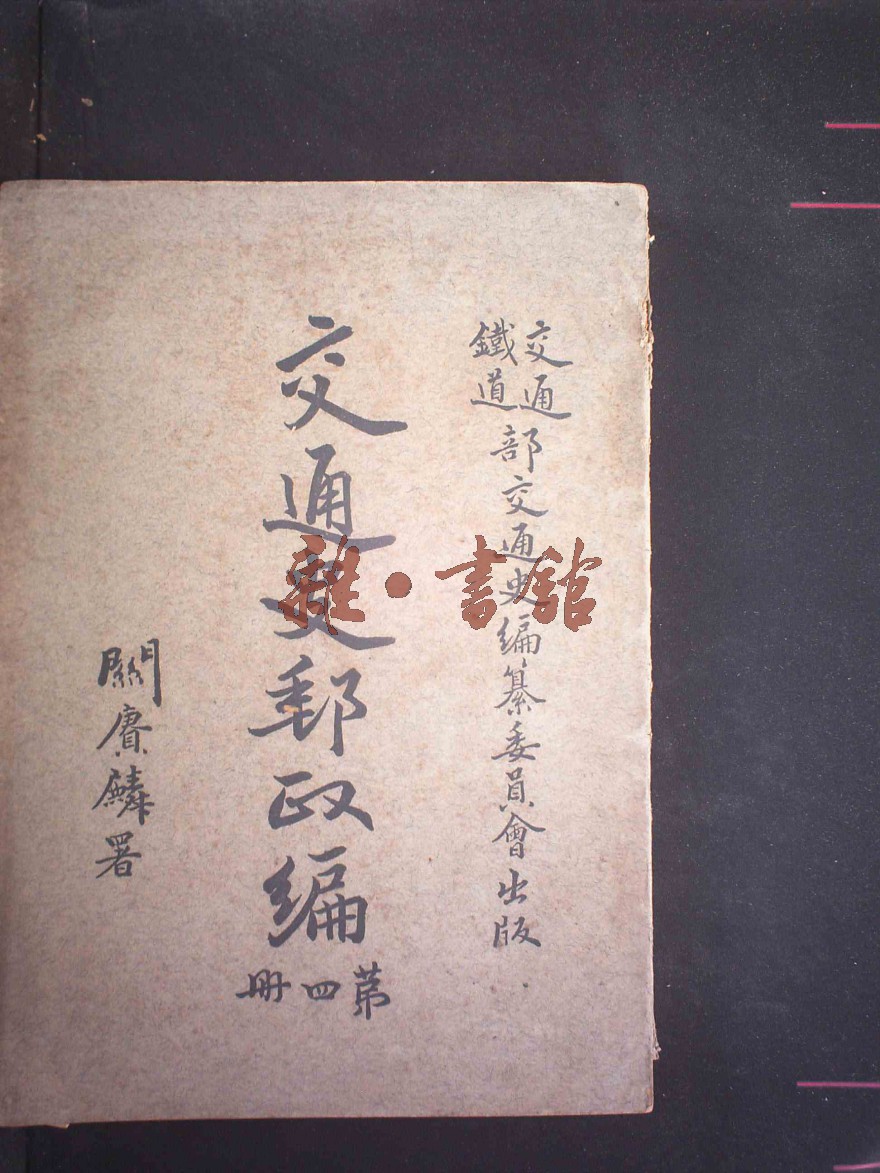 交通鐵道部交通史編纂委員會出版
交通史郵政編
第四冊
關賡麟署
雜·書館